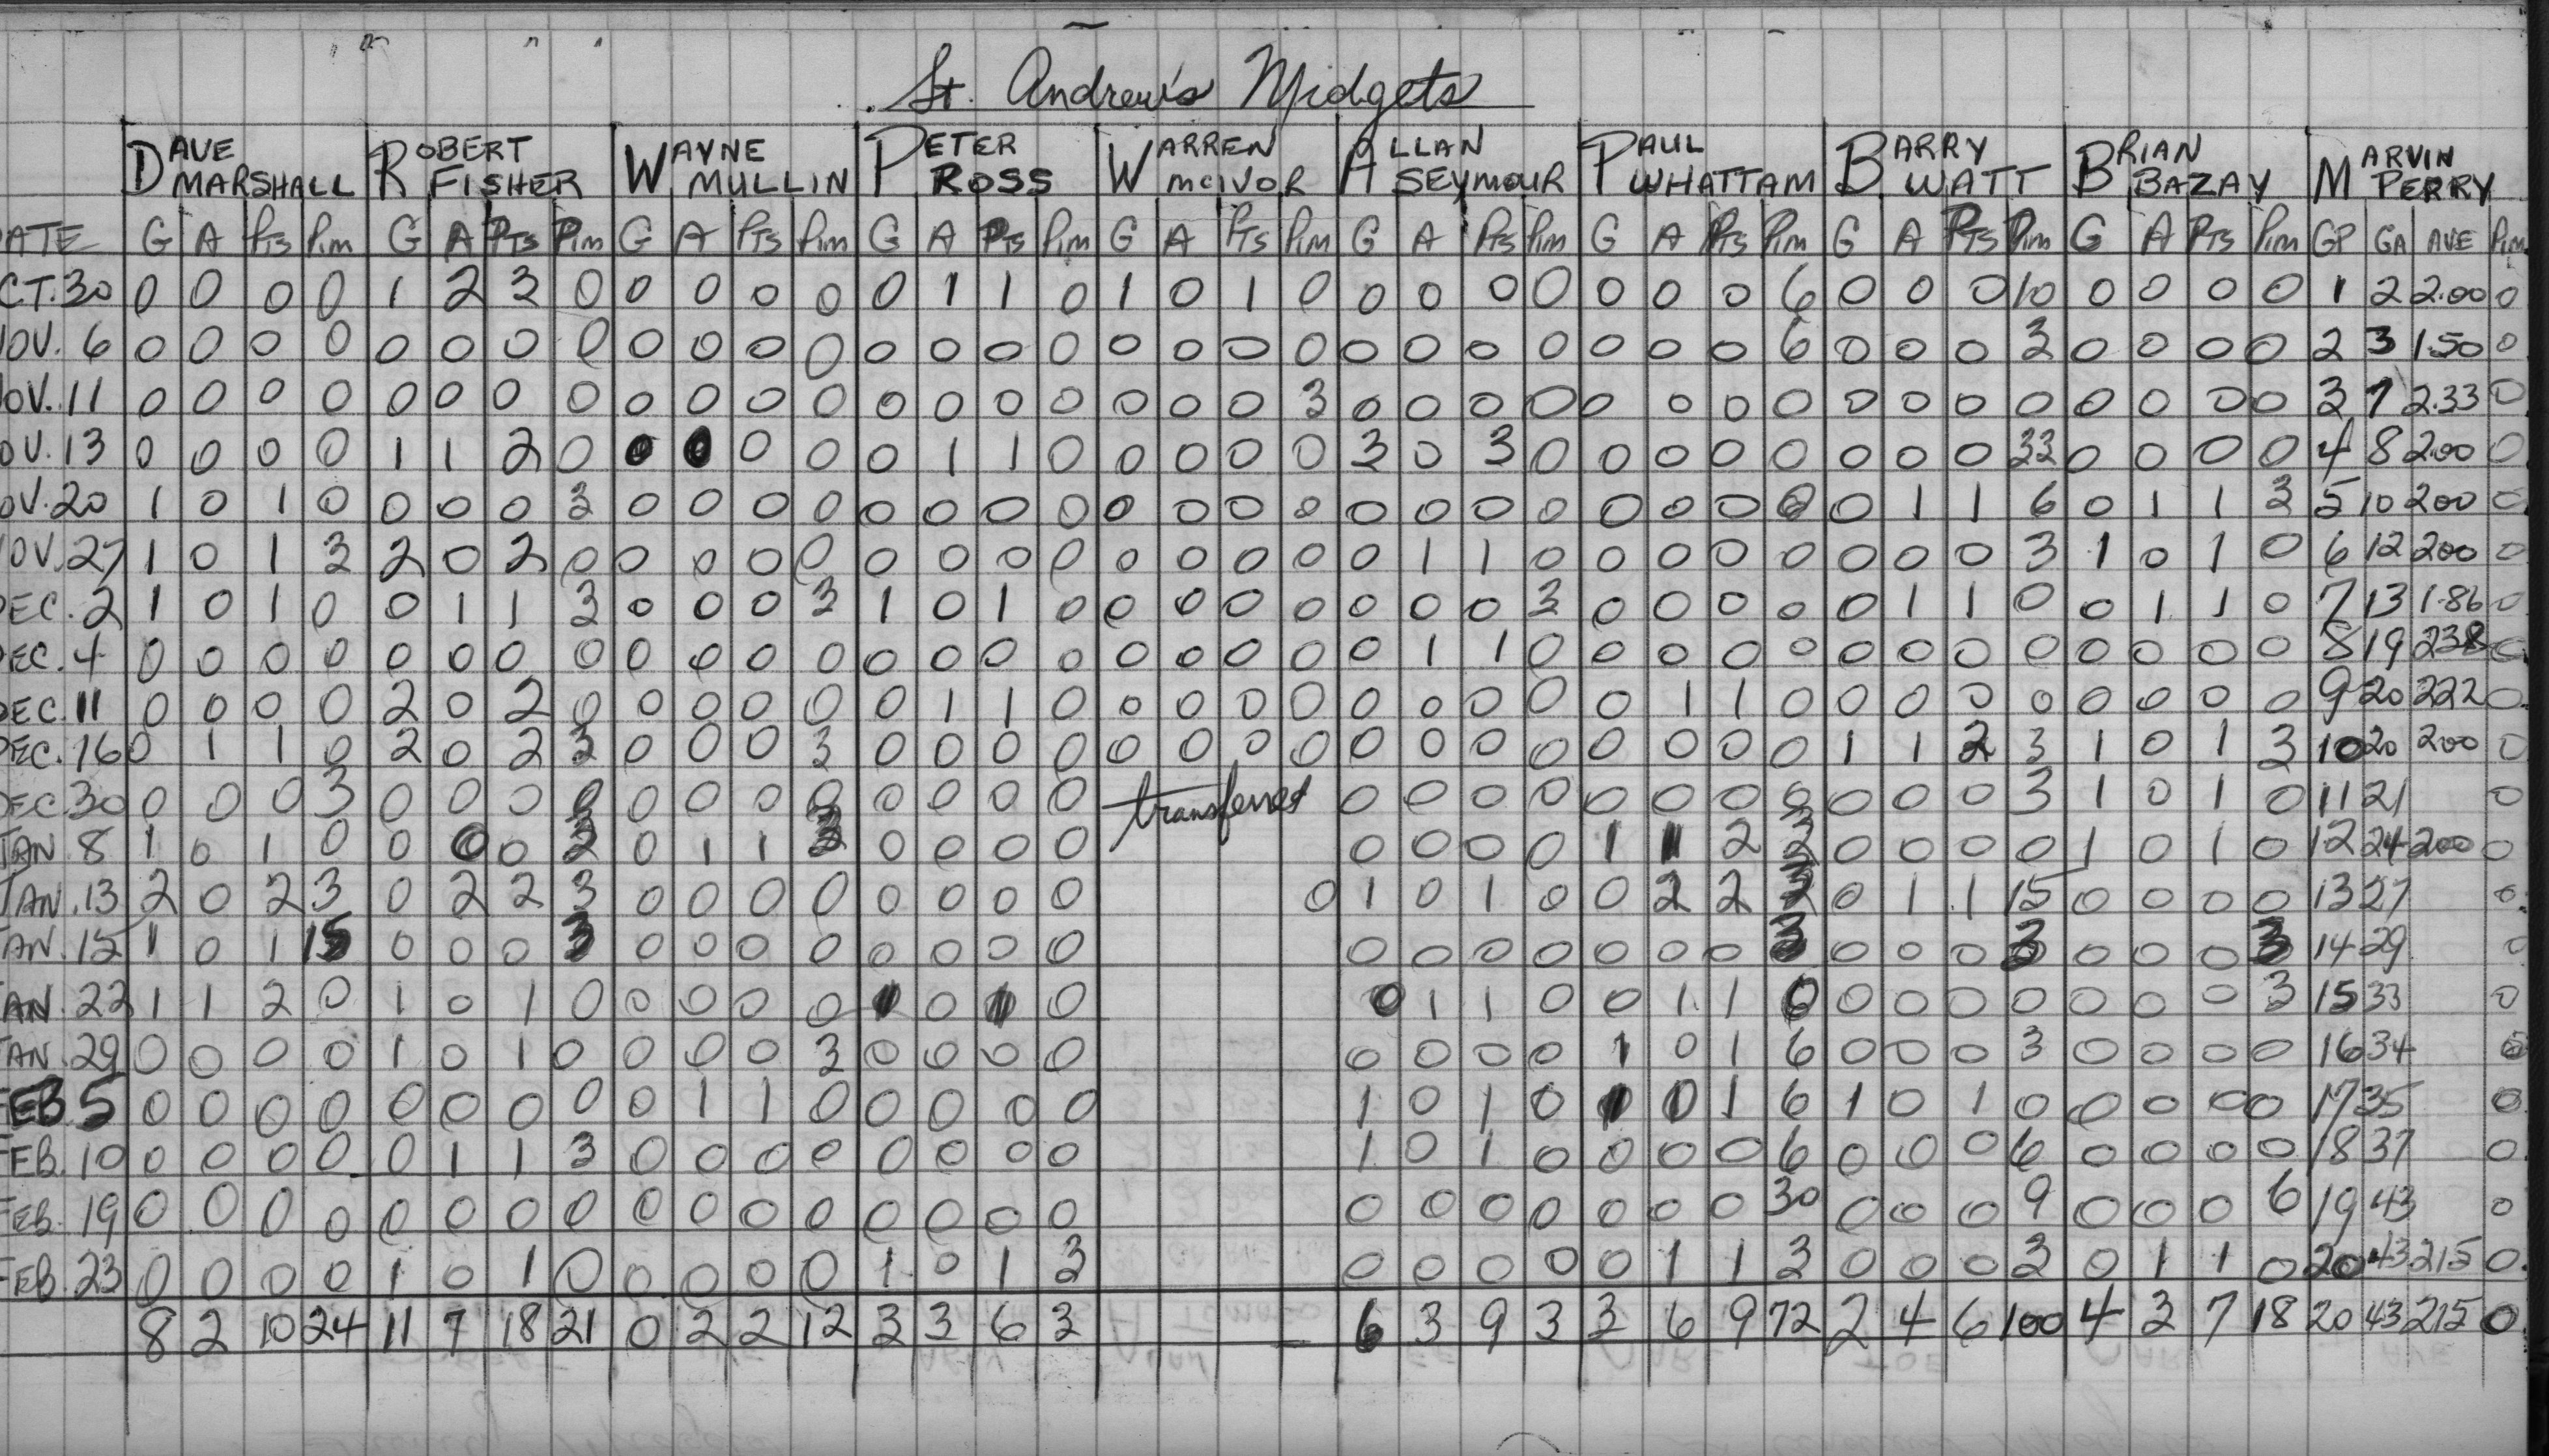 St. Andrew's Midgets
DAVE MARSHALL ROBERT FISHER WAYNE MULLIN PETER ROSS WARREN McIVOR ALLAN SEYMOUR PAUL WHATTAM BARRY WATT BRIAN BAZAY MARVIN PERRY
ATE G A PTS Pim G A PTS Pim G A PTS Pim G A PTS Pim G A PTS Pim G A PTS Pim G A PTS Pim G A PTS Pim G A PTS Pim GP GA AVE Pim
CT.30 0 0 0 0 1 2 3 0 0 0 0 0 0 1 1 0 1 0 1 0 0 0 0 0 0 0 0 6 0 0 0 10 0 0 0 0 1 2 2.00 0
OV. 6 0 0 0 0 0 0 0 0 0 0 0 0 0 0 0 0 0 0 0 0 0 0 0 0 0 0 0 6 0 0 0 3 0 0 0 0 2 3 1.50 0
OV. 11 0 0 0 0 0 0 0 0 0 0 0 0 0 0 0 0 0 0 0 3 0 0 0 0 0 0 0 0 0 0 0 0 0 0 0 0 3 7 2.33 0
OV. 13 0 0 0 0 1 1 2 0 0 0 0 0 0 1 1 0 0 0 0 0 3 0 3 0 0 0 0 0 0 0 0 33 0 0 0 0 4 8 2.00 0
OV. 20 1 0 1 0 0 0 0 3 0 0 0 0 0 0 0 0 0 0 0 0 0 0 0 0 0 0 0 0 1 1 6 0 1 1 3 5 10 200 0
OV. 27 1 0 1 3 2 0 2 0 0 0 0 0 0 0 0 0 0 0 0 0 0 1 1 0 0 0 0 0 0 0 0 3 1 0 1 0 6 12 200 0
EC. 2 1 0 1 0 0 1 1 3 0 0 0 3 1 0 1 0 0 0 0 0 0 0 0 3 0 0 0 0 0 1 1 0 0 1 1 0 7 13 1.86 0
EC. 4 0 0 0 0 0 0 0 0 0 0 0 0 0 0 0 0 0 0 0 0 0 1 1 0 0 0 0 0 0 0 0 0 0 0 0 0 8 19 238 0
EC. 11 0 0 0 0 2 0 2 0 0 0 0 0 0 1 1 0 0 0 0 0 0 0 0 0 0 1 1 0 0 0 0 0 0 0 0 0 9 20 222 0
EC. 16 0 1 1 0 2 0 2 3 0 0 0 3 0 0 0 0 0 0 0 0 0 0 0 0 0 0 0 0 1 1 2 3 1 0 1 3 10 20 200 0
EC 30 0 0 0 3 0 0 0 0 0 0 0 0 0 0 0 0 transferred 0 0 0 0 0 0 0 0 0 0 0 3 1 0 1 0 11 21 0
AN. 8 1 0 1 0 0 0 0 3 0 1 1 3 0 0 0 0 0 0 0 0 1 1 2 3 0 0 0 0 1 0 1 0 12 24 200 0
AN. 13 2 0 2 3 0 2 2 3 0 0 0 0 0 0 0 0 0 1 0 1 0 0 2 2 3 0 1 1 15 0 0 0 0 13 27 0
AN. 15 1 0 1 15 0 0 0 3 0 0 0 0 0 0 0 0 0 0 0 0 0 0 0 3 0 0 0 3 0 0 0 3 14 29 0
AN. 22 1 1 2 0 1 0 1 0 0 0 0 0 1 0 1 0 0 1 1 0 0 1 1 0 0 0 0 0 0 0 0 3 15 33 0
AN. 29 0 0 0 0 1 0 1 0 0 0 0 3 0 0 0 0 0 0 0 0 1 0 1 6 0 0 0 3 0 0 0 0 16 34 0
EB 5 0 0 0 0 0 0 0 0 0 1 1 0 0 0 0 0 1 0 1 0 1 0 1 6 1 0 1 0 0 0 0 0 17 35 0
EB. 10 0 0 0 0 0 1 1 3 0 0 0 0 0 0 0 0 1 0 1 0 0 0 0 6 0 0 0 6 0 0 0 0 18 37 0
FEB. 19 0 0 0 0 0 0 0 0 0 0 0 0 0 0 0 0 0 0 0 0 0 0 0 30 0 0 0 9 0 0 0 6 19 43 0
FEB. 23 0 0 0 0 1 0 1 0 0 0 0 0 1 0 1 3 0 0 0 0 0 1 1 3 0 0 0 3 0 1 1 0 20 43 215 0
8 2 10 24 11 7 18 21 0 2 2 12 3 3 6 3 6 3 9 3 3 6 9 72 2 4 6 100 4 3 7 18 20 43 215 0